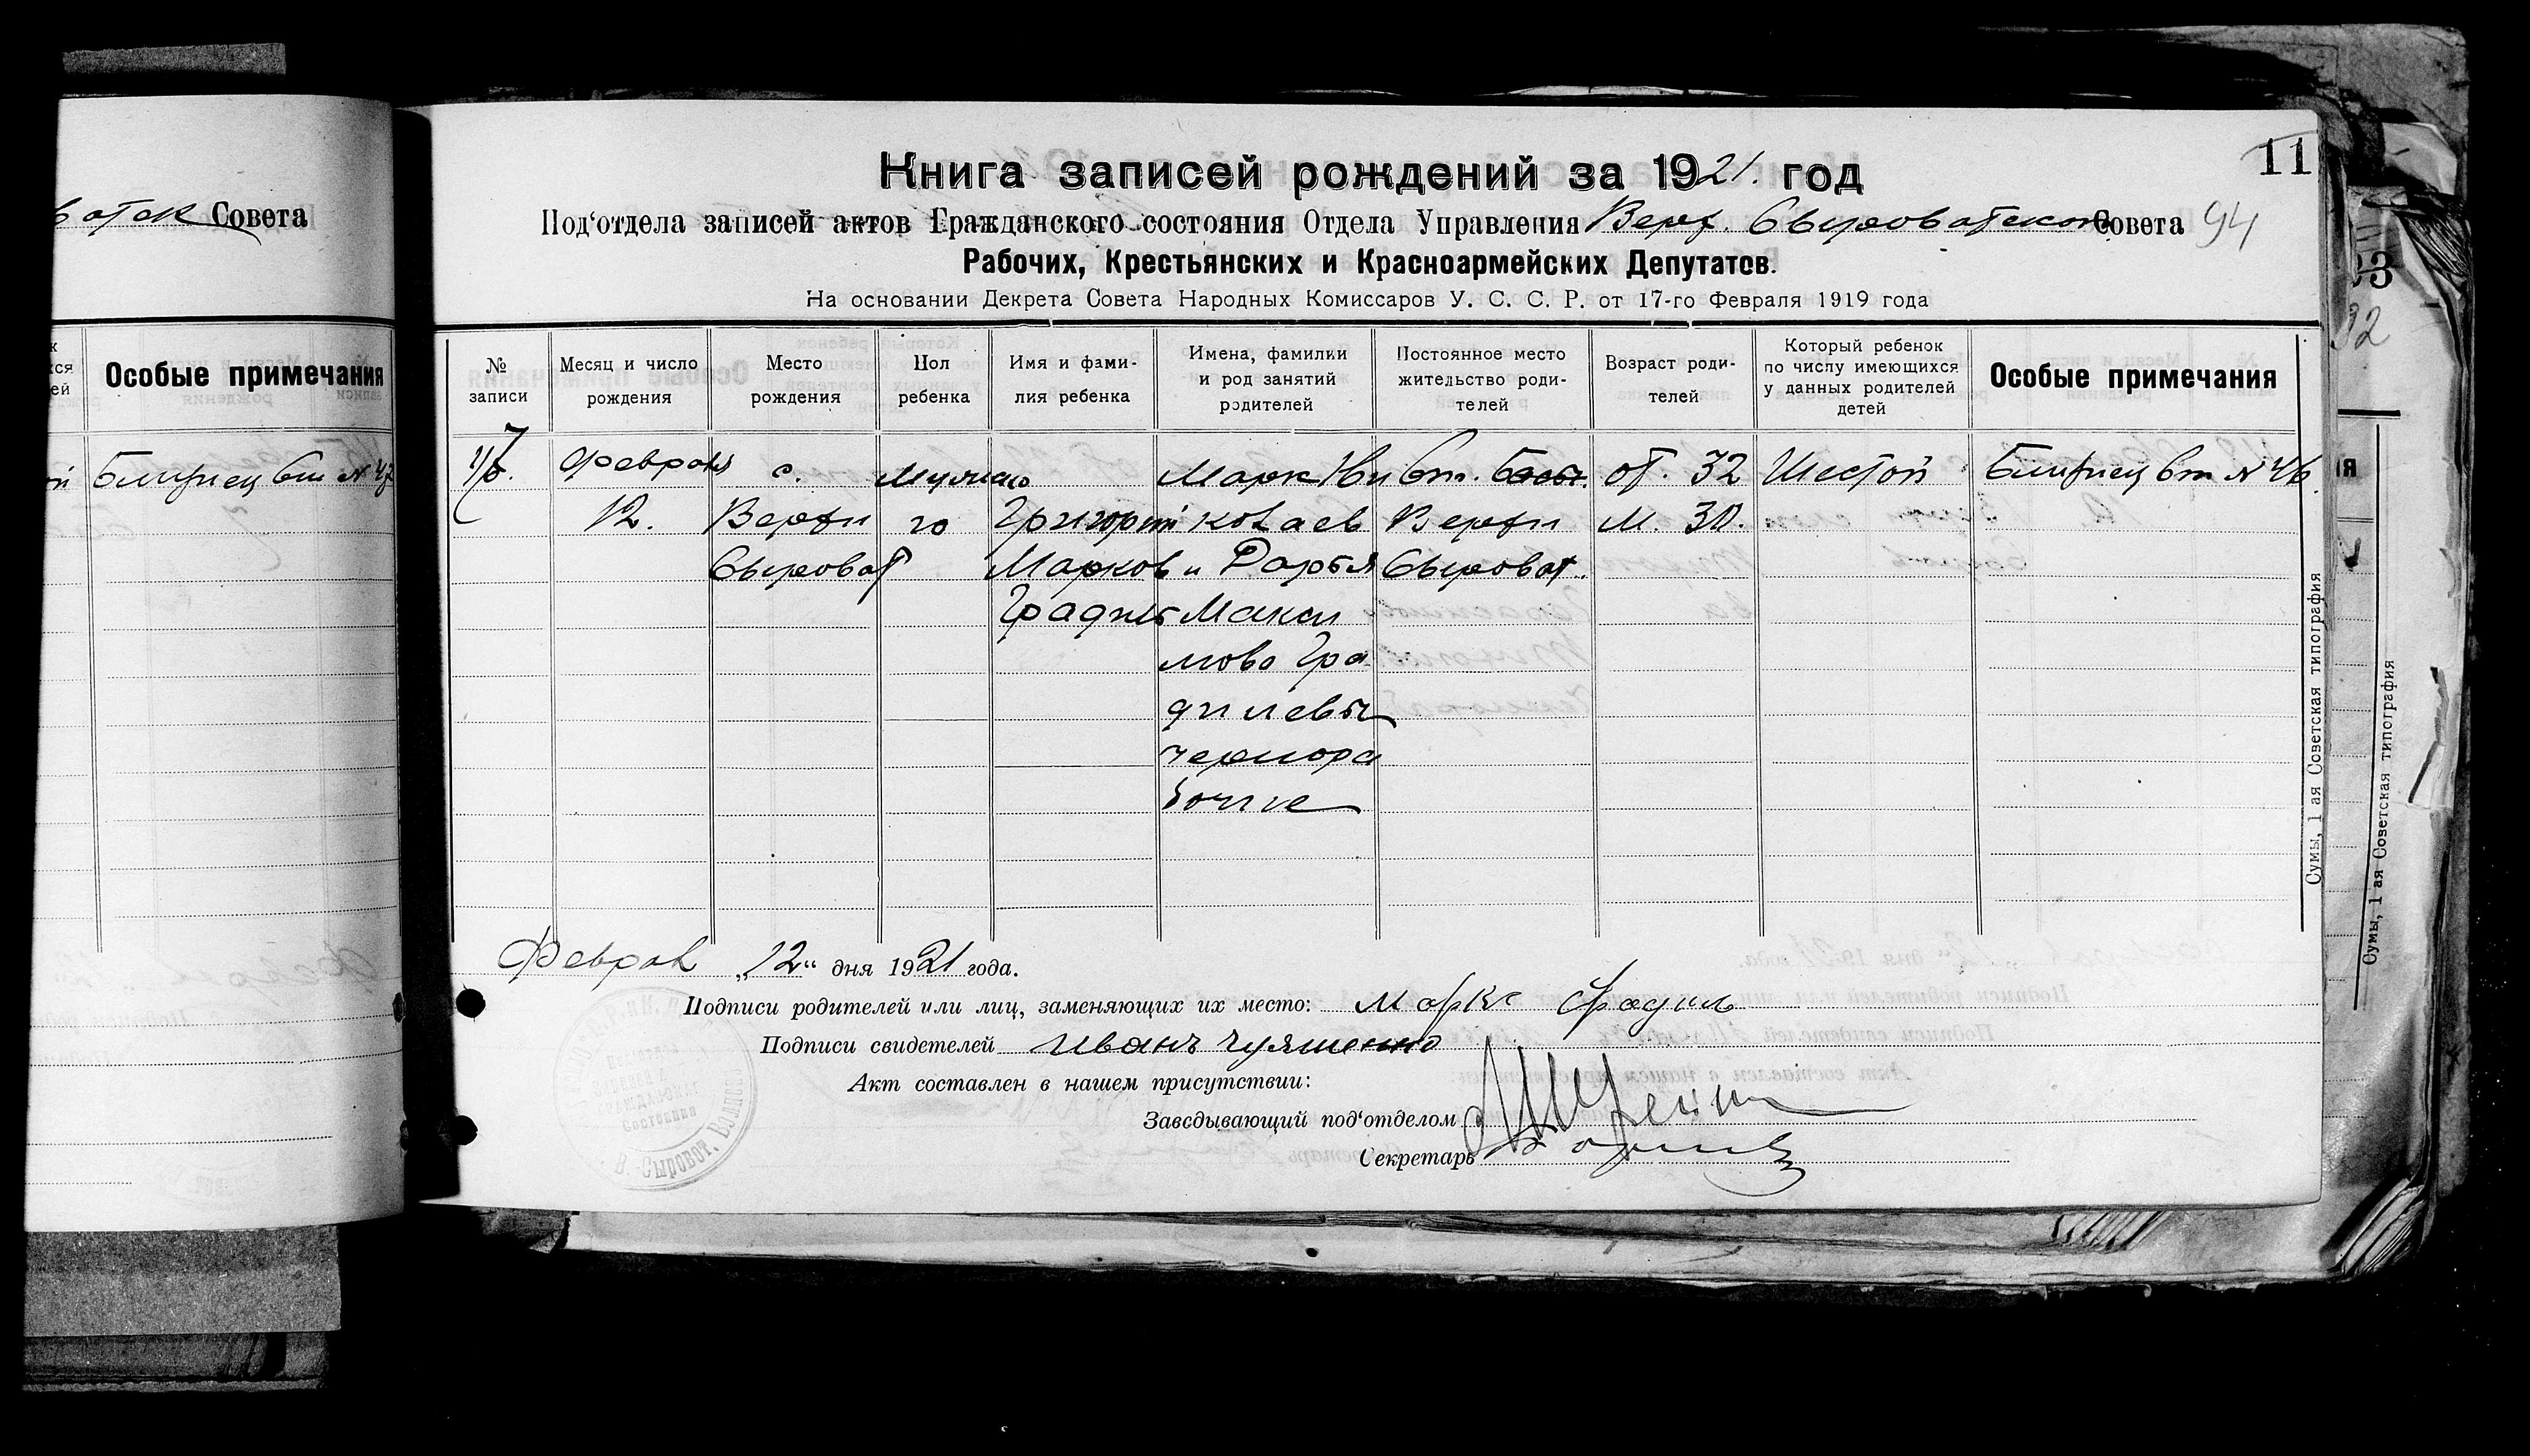 Совета
Особые примечания
Близнец вт № 47
11
Книга записей рождений за 1921. год
Под‘отдела записей актов Гражданского состояния Отдела Управления Верх. Сыроватского Совета 94
Рабочих, Крестьянских и Красноармейских Депутатов.
На основании Декрета Совета Народных Комиссаров У. С. С. Р. от 17-го Февраля 1919 года
№ записи
Месяц и число рождения
Место рождения
Пол ребенка
Имя и фамилия ребенка
Имена, фамилии и род занятий родителей
Постоянное место жительство родителей
Возраст родителей
Который ребенок по числу имеющихся у данных родителей детей
Особые примечания
Февраля
12.
с.
Верхн
Сыроват
Мужско
го
Григорий
Марков
Градиль
Марк Ни
колаев
и Дарья
Макси
мова Гра
дилевы
черпора
бочие
Верхн
Сыроват.
от. 32
м. 30.
Шестой
Близнец вт № 46.
Феврал „12“ дня 1921 года.
Подписи родителей или лиц, заменяющих их место: Марк Градиль
Подписи свидетелей Иванъ
Акт составлен в нашем присутствии:
Заведывающий под‘отделом
Секретарь
Сумы, 1 ая Советская типография
Сумы, 1 ая Советская типография